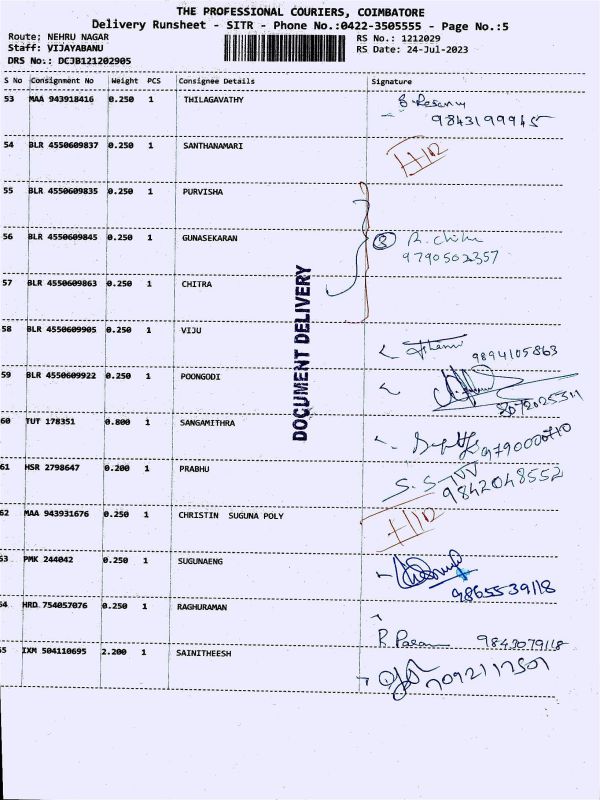 THE PROFESSIONAL COURIERS, COIMBATORE
Delivery Runsheet - SITR - Phone No.:0422-3505555 - Page No.:5
Route: NEHRU NAGAR RS No.: 1212029
Staff: VIJAYABANU RS Date: 24-Jul-2023
DRS No.: DCJB121202905
S No Consignment No Weight PCS Consignee Details Signature
53 MAA 943918416 0.250 1 THILAGAVATHY
9843199945
54 BLR 4550609837 0.250 1 SANTHANAMARI
55 BLR 4550609835 0.250 1 PURVISHA
56 BLR 4550609845 0.250 1 GUNASEKARAN
9790502357
57 BLR 4550609863 0.250 1 CHITRA
DOCUMENT DELIVERY
58 BLR 4550609905 0.250 1 VIJU
9894105863
59 BLR 4550609922 0.250 1 POONGODI
60 TUT 178351 0.800 1 SANGAMITHRA
61 HSR 2798647 0.200 1 PRABHU
9842048552
62 MAA 943931676 0.250 1 CHRISTIN SUGUNA POLY
63 PMK 244042 0.250 1 SUGUNAENG
9865539118
64 HRD 754057076 0.250 1 RAGHURAMAN
9843079118
65 IXM 504110695 2.200 1 SAINITHEESH